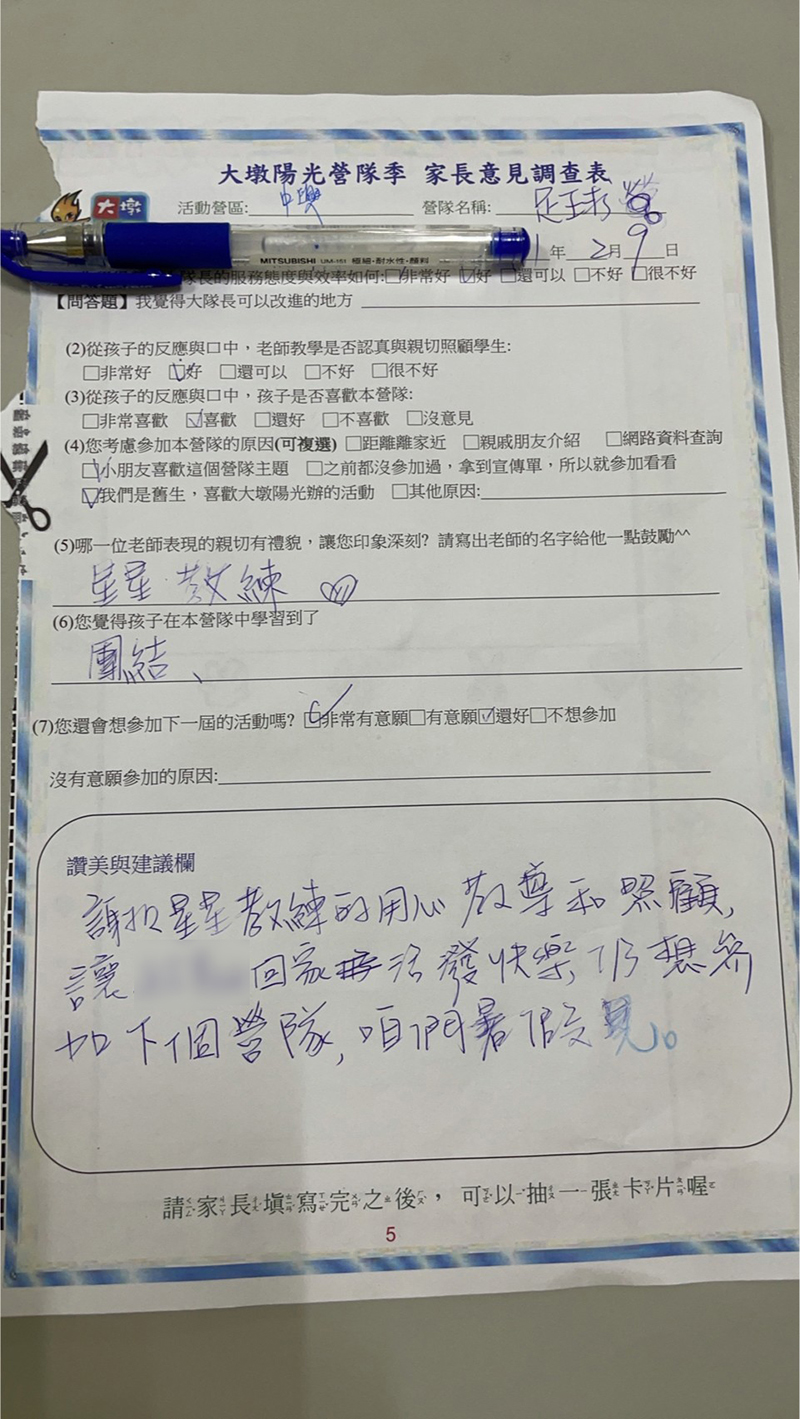 大墩陽光營隊季 家長意見調查表
大墩 活動營區: 中興 營隊名稱: 足球 營
MITSUBISHI UM-151 極細・耐水性・顔料
1 年 2 月 9 日
隊長的服務態度與效率如何:□非常好 ☑好 □還可以 □不好 □很不好
【問答題】我覺得大隊長可以改進的地方
(2)從孩子的反應與口中，老師教學是否認真與親切照顧學生:
□非常好 ☑好 □還可以 □不好 □很不好
(3)從孩子的反應與口中，孩子是否喜歡本營隊:
□非常喜歡 ☑喜歡 □還好 □不喜歡 □沒意見
(4)您考慮參加本營隊的原因(可複選) □距離離家近 □親戚朋友介紹 □網路資料查詢
☑小朋友喜歡這個營隊主題 □之前都沒參加過，拿到宣傳單，所以就參加看看
☑我們是舊生，喜歡大墩陽光辦的活動 □其他原因:
(5)哪一位老師表現的親切有禮貌，讓您印象深刻? 請寫出老師的名字給他一點鼓勵^^
星星 教練
(6)您覺得孩子在本營隊中學習到了
團結、
(7)您還會想參加下一屆的活動嗎? ☑非常有意願□有意願☑還好□不想參加
沒有意願參加的原因:
讚美與建議欄
謝謝星星教練的用心教導和照顧,
讓 回家 活發快樂, 仍想參
加下個營隊, 咱們暑假見。
請家長填寫完之後，可以抽一張卡片喔
5